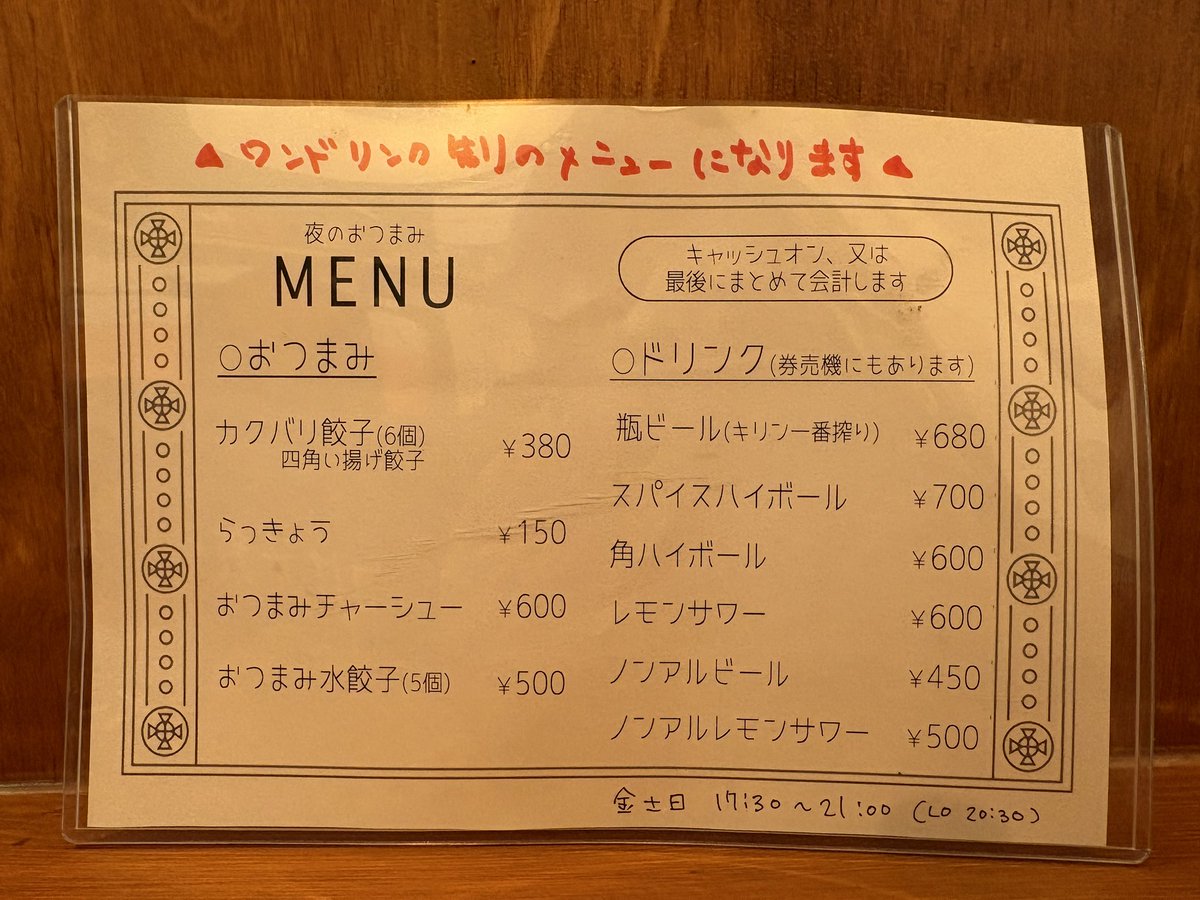 ▲ワンドリンク制のメニューになります▲
夜のおつまみ
MENU
キャッシュオン、又は
最後にまとめて会計します
○おつまみ
カクバリ餃子(6個) ¥380
四角い揚げ餃子
らっきょう ¥150
おつまみチャーシュー ¥600
おつまみ水餃子(5個) ¥500
○ドリンク(券売機にもあります)
瓶ビール(キリン一番搾り) ¥680
スパイスハイボール ¥700
角ハイボール ¥600
レモンサワー ¥600
ノンアルビール ¥450
ノンアルレモンサワー ¥500
金土日 17:30～21:00 (LO 20:30)